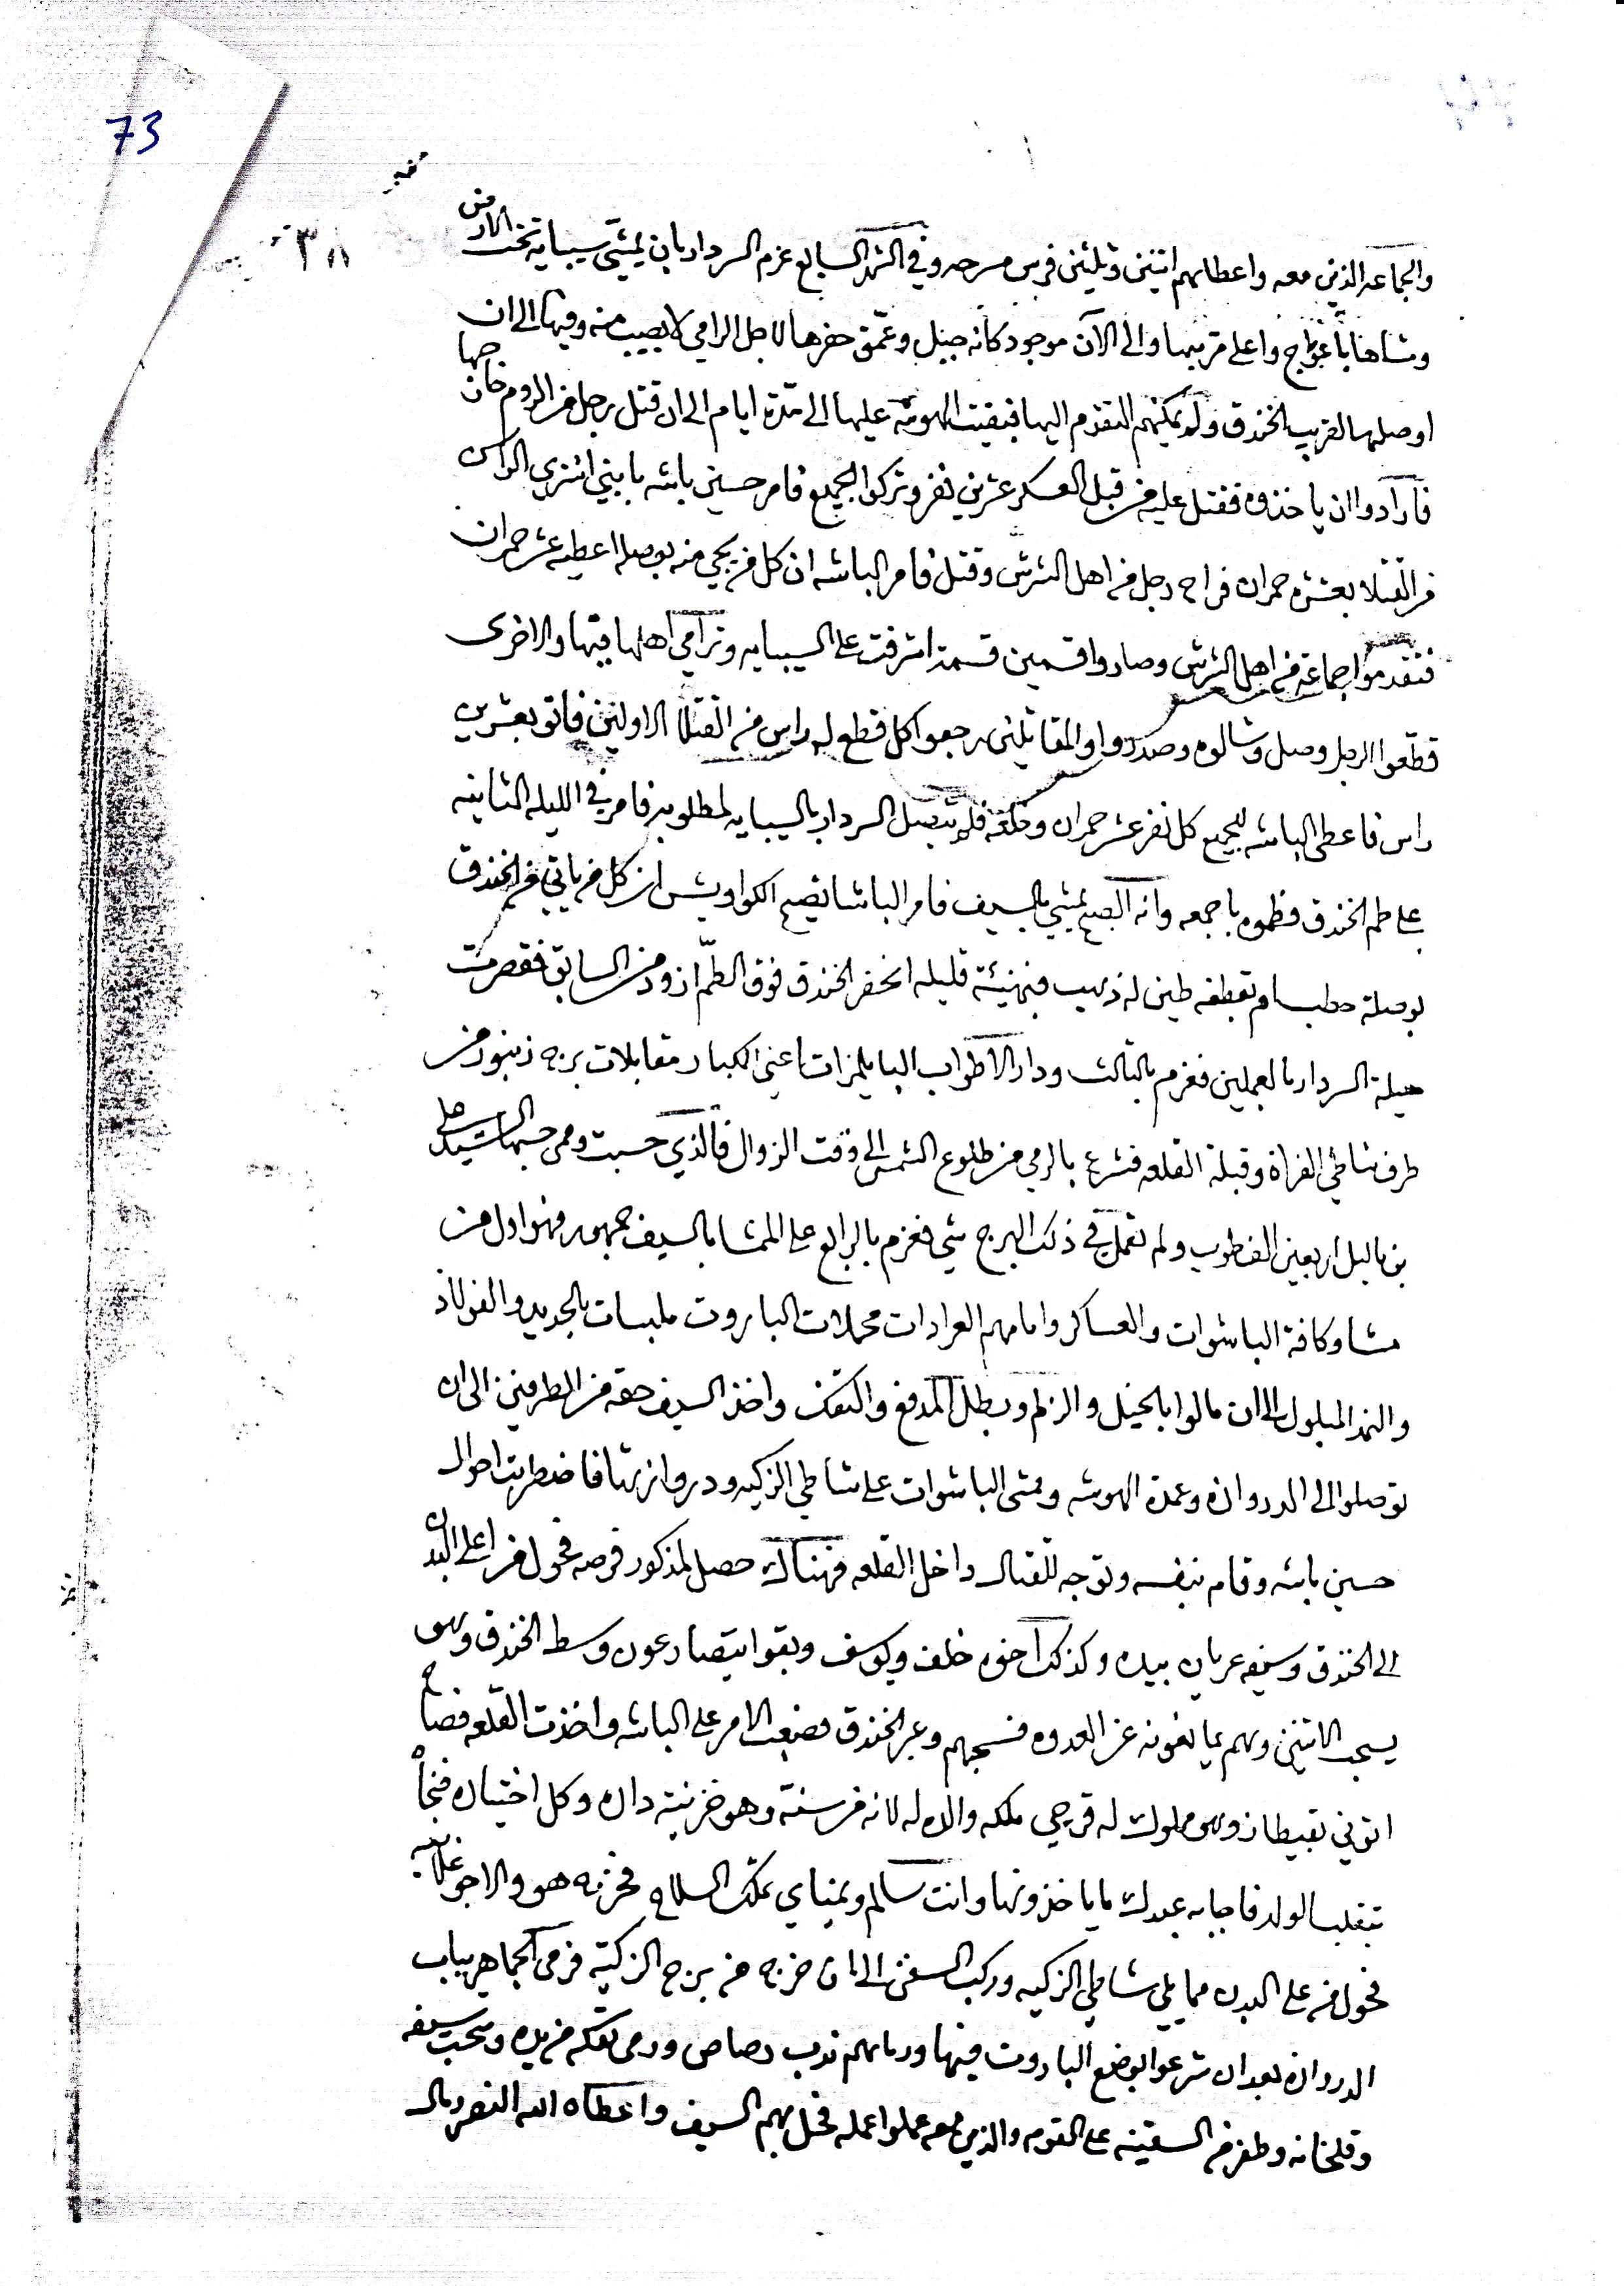 73
٣٨
والجماعه الذين معه واعطاهم اثنين وثلثين فرس مسرجه وفي الشهر السابع عزم السردار بان يمشي سيبايه تحت الارض
ومشاها باعوجاج واعلى قربها والى الآن موجود كانه جبل وعمّق حفرها لاجل الرامي لا يصيب منه وفيها الى ان
اوصلها لقريب الخندق ولم يمكنهم التقدم اليها فبقيت الهوشه عليها الى مدّة ايام الى ان قتل رجل من الروم خان جها
فارادوا ان ياخذوه فقتل عليه من قبل العسكر عشرين نفر وتركوا الجميع فامر حسين باشه يا بني اشتري الراس
من القتلا بعشره حمران فراح رجل من اهل الشرش وقتل فامر الباشه ان كل من يجي منه بوصله اعطيه عشر حمران
فتقدموا جماعة من اهل الشرش وصاروا قسمين قسمة اشرفت على السيبايه وترامي اهلها فيها والاخرى
قطّعوا الرجل وصل وشالوه وصدروا والمقاتلين رجعوا كل قطع له راس من القتلا الاولين فاتو بعشرين
راس فاعطى الباشه للجميع كل نفر عشر حمران وخلعة فلم يتصل السردار بالسيبايه لمطلوبه فامر في الليله الثانيه
على طم الخندق فطموه باجمعه وانه الصبح يمشي بالسيف فامر الباشا تصيح الكواويش ان كل من ياتي من الخندق
بوصلة حطب او بقطفه طين له ذهب فبهنيئة قليله انحفر الخندق فوق الطمّ ازود من السابق فقصرت
حيلة السردار بالعملين فعزم بالثالث ودار الاطواب الباليمزات اعني الكبار مقابلات برج زنبور من
طرف شاطي الفراة وقبلة القلعه فشرع بالرمي من طلوع الشمس الى وقت الزوال فالذي حسبت ومن حسبها السيد علي
بن باليل اربعين الف طوب ولم تعمل في ذلك البرج شي فعزم بالرابع على الممشا بالسيف جمهور فهو اول من
مشا وكافة الباشوات والعساكر وامامهم العرادات محملات الباروت ملبسات بالحديد والفولاذ
والنمد المبلول الى ان مالوا بالخيل والزلم وبطل المدفع والتفك واخذ السيف حقه من الطرفين الى ان
توصلوا الى الدروازه وعمدة الهوشه ومشى الباشوات على شاطي الزكيه ودروازتها فاضطربت احوال
حسين باشه وقام بنفسه وتوجه للقتال داخل القلعه فهناك حصل لمذكور فرصه فحول من اعلى البدن
الى الخندق وسيفه عريان بيده وكذلك اخوه خلف ويوسف وبقوا يتصارعون وسط الخندق وهو
يسحب الاثنين وهم يمانعونه عن العدوه فسحبهم وعبر الخندق فضعب الامر على الباشه واخذت القلعه فصاح
اتوني بقيطاز وهو مملوك له قرجي ملكه والاه له لانه من سنّة وهو خزينة داره وكل اختياره فجاً
بتقلب الولد فاجابه عبدك ما ياخذونها وانت سالم ويمناي تملك السلاح فخرج هو والاجوعلانيه
فحول من على البدن مما يلي شاطي الزكيه وركب السفن الى ان خرج من برج الزكيّة فرمى الجماهر بباب
الدروازه بعد ان شرعوا بوضع الباروت فيها ورماهم ندب رصاص ورمى تفكه من يده وسحب سيفه
وقلخانه وطفر من السفينه على القوم والذين معه عملوا عمله فحل بهم السيف واعطاه الله النصر ومال